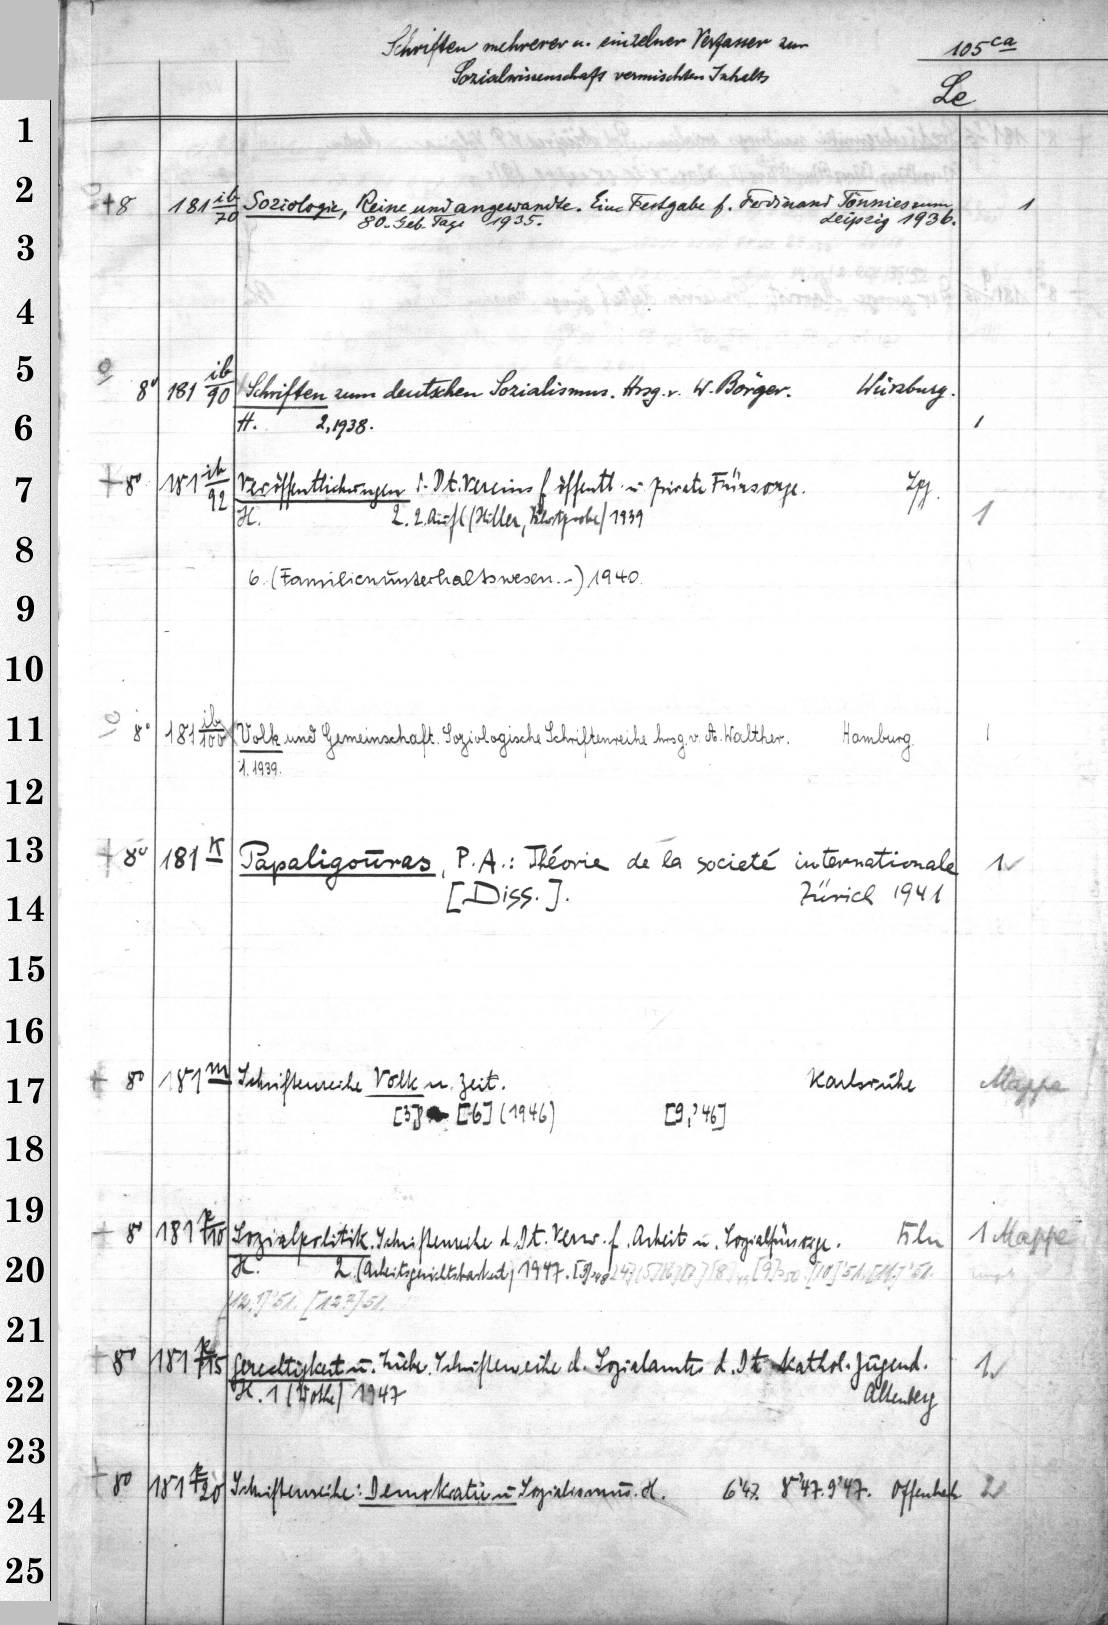 Schriften mehrerer u. einzelner Verfasser zur
105 ca
Sozialwissenschaft vermischten Inhalts
Le
1
2
+8 181 ib/70 Soziologie, Reine und angewandte. Eine Festgabe f. Ferdinand Tönnies zum 1
80. Geb. Tage 1935. Leipzig 1936.
3
4
5
8° 181 ib/90 Schriften zum deutschen Sozialismus. Hrsg. v. W. Börger. Würzburg.
6 H. 2,1938. 1
7 +8° 181 ib/92 Veröffentlichungen d. Dt. Vereins f. öffentl. u private Fürsorge. Lpz.
H. 2. 2. Aufl (Hiller, ) 1939 1
8
6. (Familienunterhaltswesen..) 1940.
9
10
11 8° 181 ib/100 Volk und Gemeinschaft. Soziologische Schriftenreihe hrsg. v. A. Walther. Hamburg. 1
1. 1939.
12
13 +8° 181 K Papaligoūras, P. A.: Théorie de la societé internationale 1
14 [Diss.]. Zürich 1941
15
16
17 +8° 181 m Schriftenreihe Volk u. Zeit. Karlsruhe Mappe
[3] [6] (1946) [9,'46]
18
19
+8° 181 p/10 Sozialpolitik. Schriftenreihe d. Dt. Verw. f. Arbeit u. Sozialfürsorge. Köln 1 Mappe
20 H. 2. (Arbeitsgerichtsbarkeit) 1947. [10]'51. [11.]'51.
[12.]'51. [12?]51.
21
+8° 181 p/15 Gerechtigkeit u. Liebe. Schriftenreihe d. Sozialamts d. Dt. Kathol. Jugend. 1
22 H. 1 (Wothe) 1947 Altenberg
23
+8° 181 p/20 Schriftenreihe: Demokratie u Sozialismus. H. 6'47. 8'47. 9'47. Offenbach 2
24
25